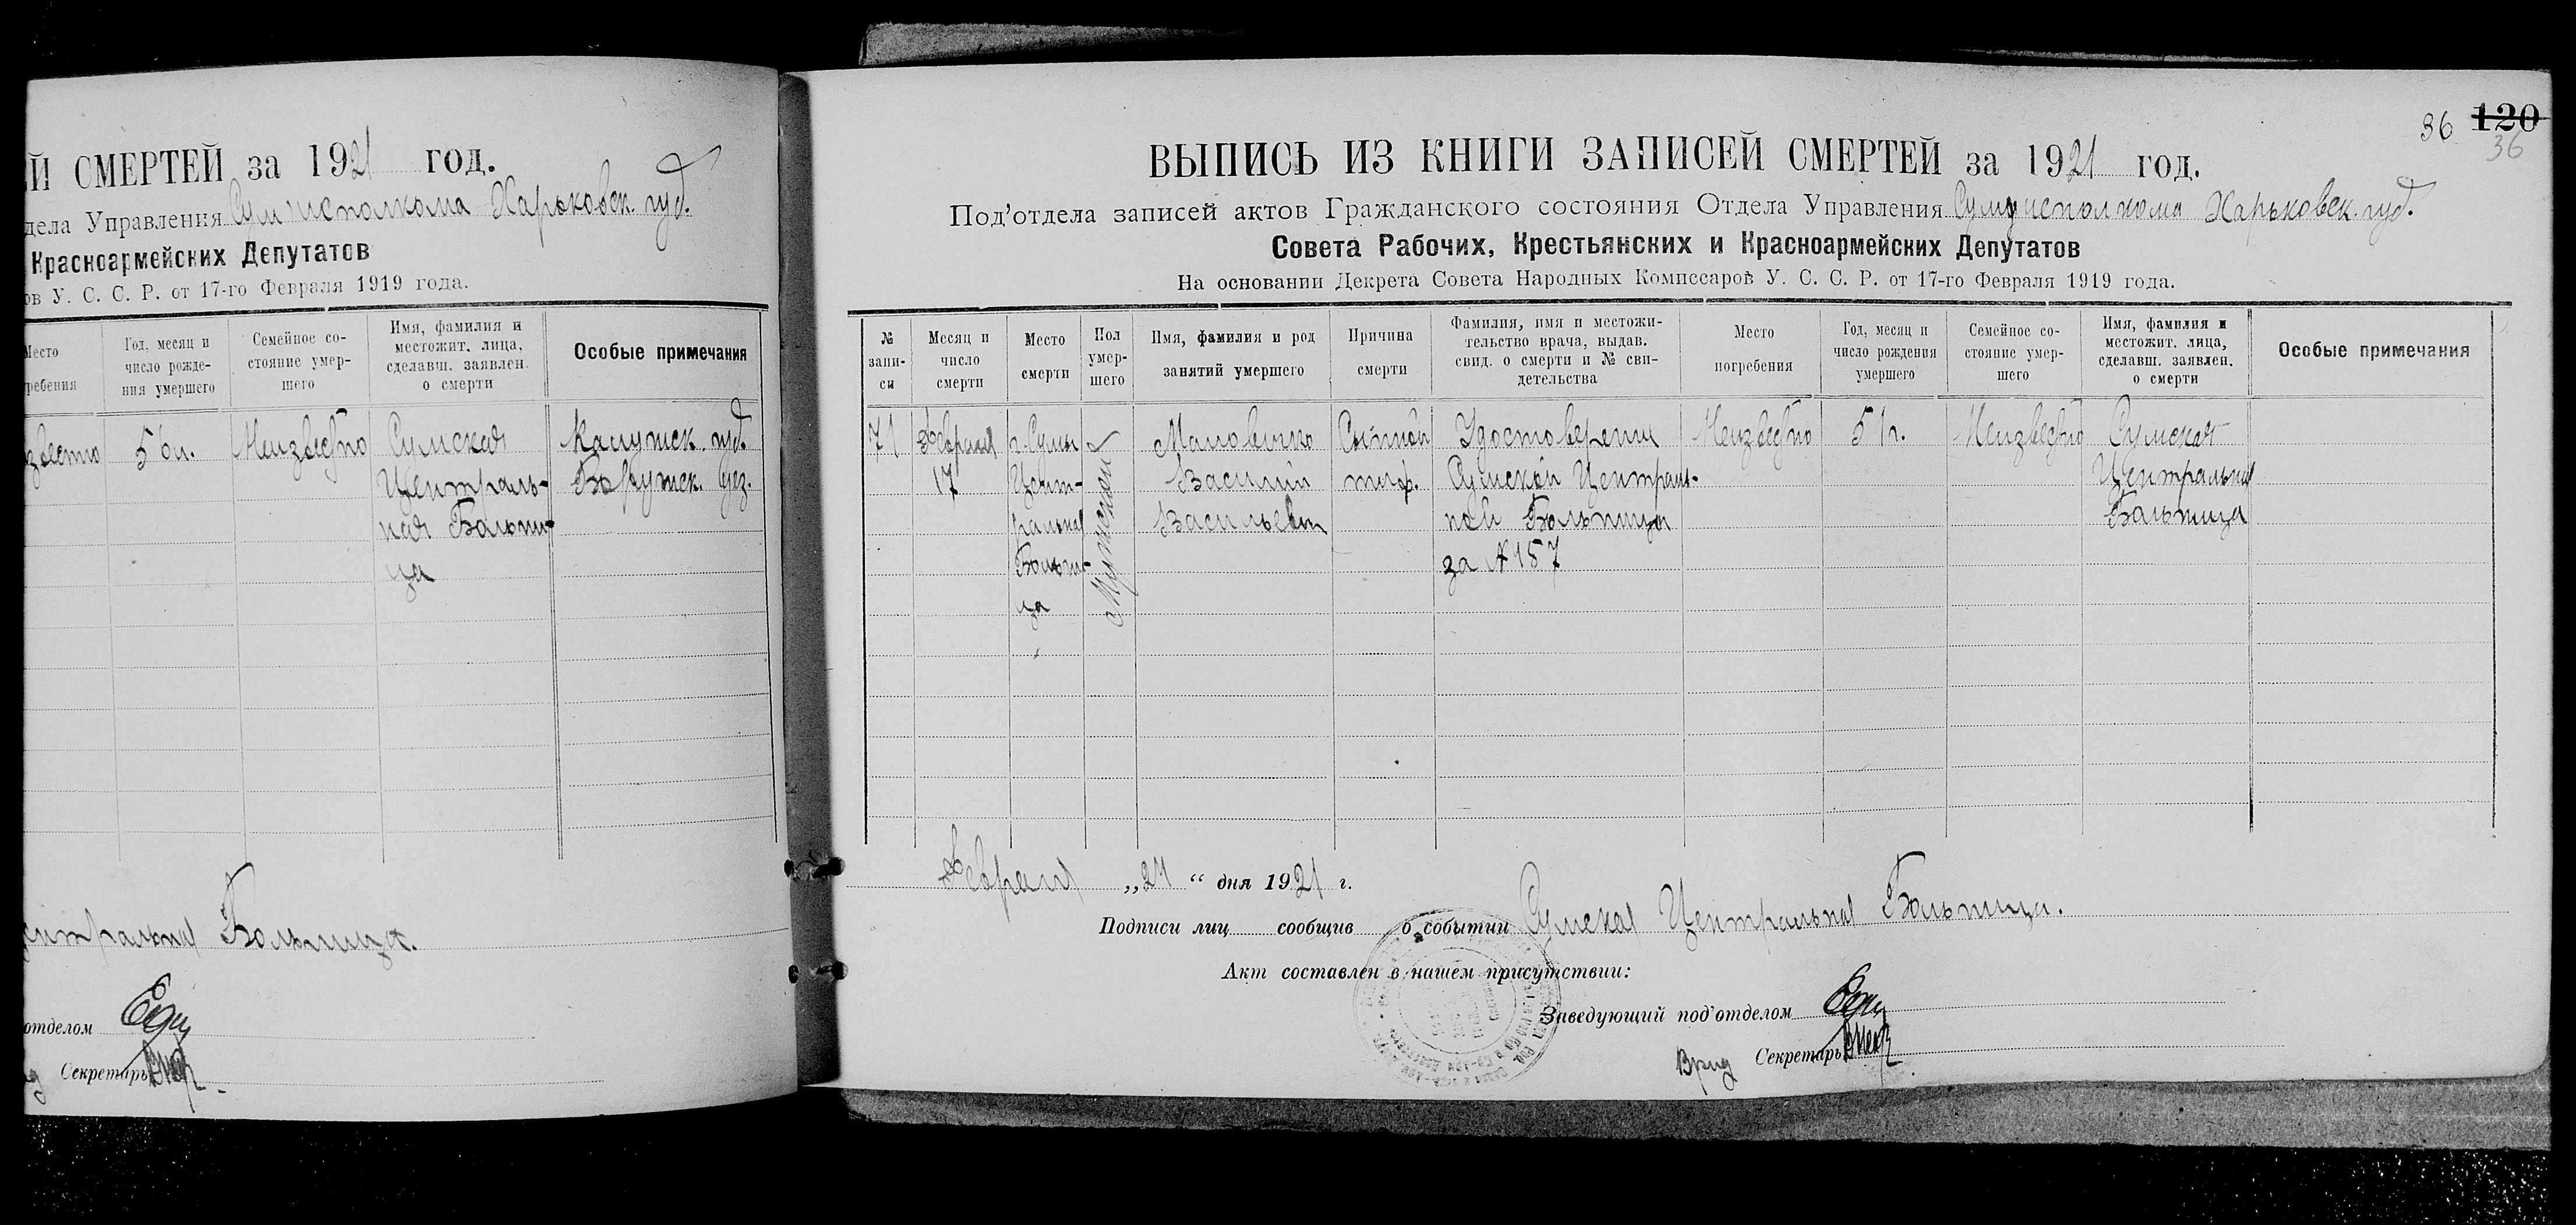 Й СМЕРТЕЙ за 1921 год.
дела Управления Сумуисполкома Харьковск. губ.
Красноармейских Депутатов
ов У. С. С. Р. от 17-го Февраля 1919 года.
Место
погребения
Год, месяц и
число рожде-
ния умершего
Семейное со-
стояние умер-
шего
Имя, фамилия и
местожит. лица,
сделавш. заявлен.
о смерти
Особые примечания
звестно
Неизвестно
Сумская
Централь-
ная Больни-
ца
Калужск. губ.
уез.
Центральная Больница.
отделом
Секретарь
36 120
36
ВЫПИСЬ ИЗ КНИГИ ЗАПИСЕЙ СМЕРТЕЙ за 1921 год.
Под'отдела записей актов Гражданского состояния Отдела Управления Сумуисполкома Харьковск. губ.
Совета Рабочих, Крестьянских и Красноармейских Депутатов
На основании Декрета Совета Народных Комиссаров У. С. С. Р. от 17-го Февраля 1919 года.
№
запи-
си
Месяц и
число
смерти
Место
смерти
Пол
умер-
шего
Имя, фамилия и род
занятий умершего
Причина
смерти
Фамилия, имя и местожи-
тельство врача, выдав.
свид. о смерти и № сви-
детельства
Место
погребения
Год, месяц и
число рождения
умершего
Семейное со-
стояние умер-
шего
Имя, фамилия и
местожит. лица,
сделавш. заявлен.
о смерти
Особые примечания
71
Февраля
17
г. Сумы
Цент-
ральная
Больни-
ца
Мужской
Маловичко
Василий
Васильевич
Сыпной
тиф.
Удостоверение
Сумской Централь-
ной Больницы
за № 157
Неизвестно
51 г.
Неизвестно
Сумская
Центральная
Больница
Февраля „24“ дня 1921 г.
Подписи лиц сообщив о событии Сумская Центральная Больница.
Акт составлен в нашем присутствии:
Заведующий под'отделом
Врид Секретарь